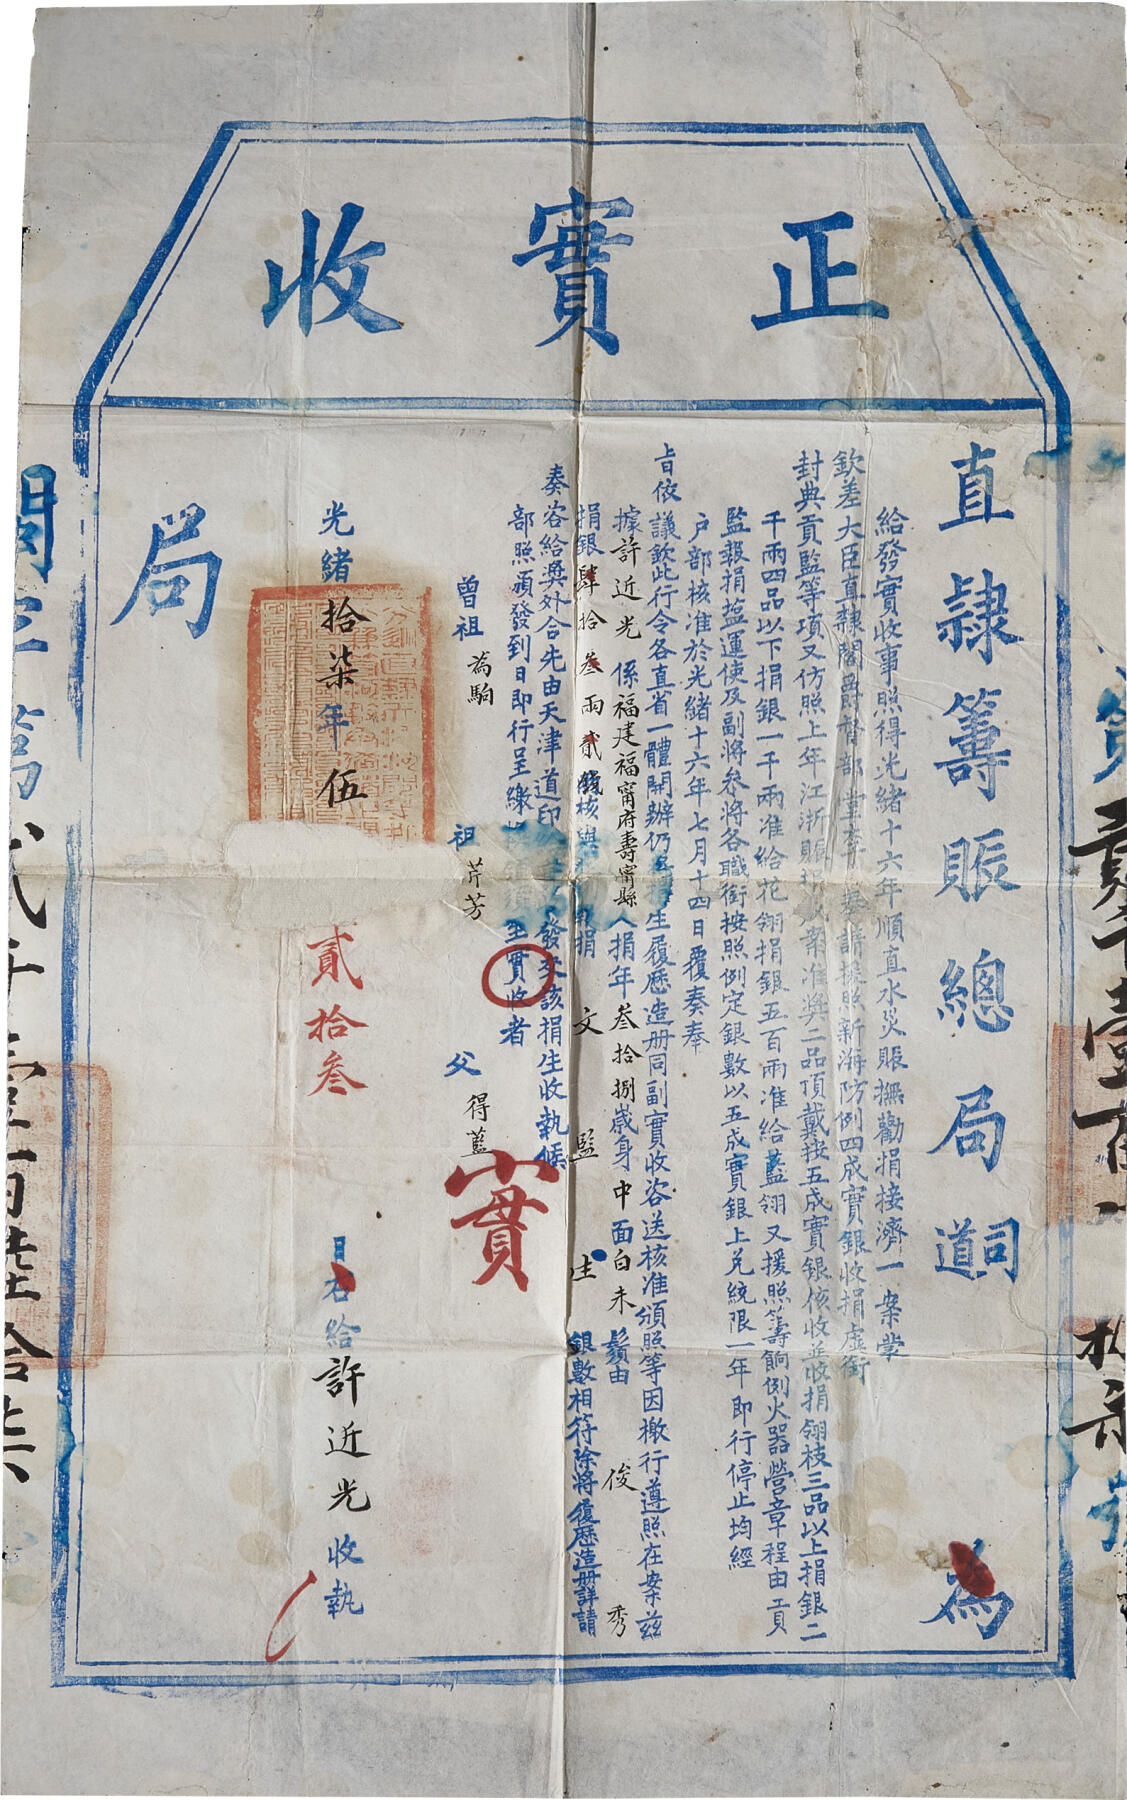 正實收
直隸籌賑總局司道為
給發實收事照得光緒十六年順直水災賑撫勸捐接濟一案蒙
欽差大臣直隸閣爵督部堂李奏請援照新海防例四成實銀收捐虛銜
封典貢監等項又仿照上年江浙賑捐成案准獎二品頂戴按五成實銀核收並收捐翎枝三品以上捐銀二
千兩四品以下捐銀一千兩准給花翎捐銀五百兩准給藍翎又援照籌餉例火器營章程由貢
監報捐鹽運使及副將參將各職銜按照例定銀數以五成實銀上兌統限一年即行停止均經
户部核准於光緒十六年七月十四日覆奏奉
旨依議欽此行令各直省一體開辦仍捐生履歷造册同副實收咨送核准頒照等因檄行遵照在案茲
據許近光係福建福甯府壽甯縣人捐年叁拾捌歲身中面白未鬚由俊秀
捐銀肆拾叁兩貳錢核與捐文監生銀數相符除將履歷造册詳請
奏咨給獎外合先由天津道印發交該捐生收執候
部照頒發到日即行呈繳實收者
曾祖為駒
祖芹芳
父得藍
實
光緒拾柒年伍貳拾叁日右給許近光收執
局